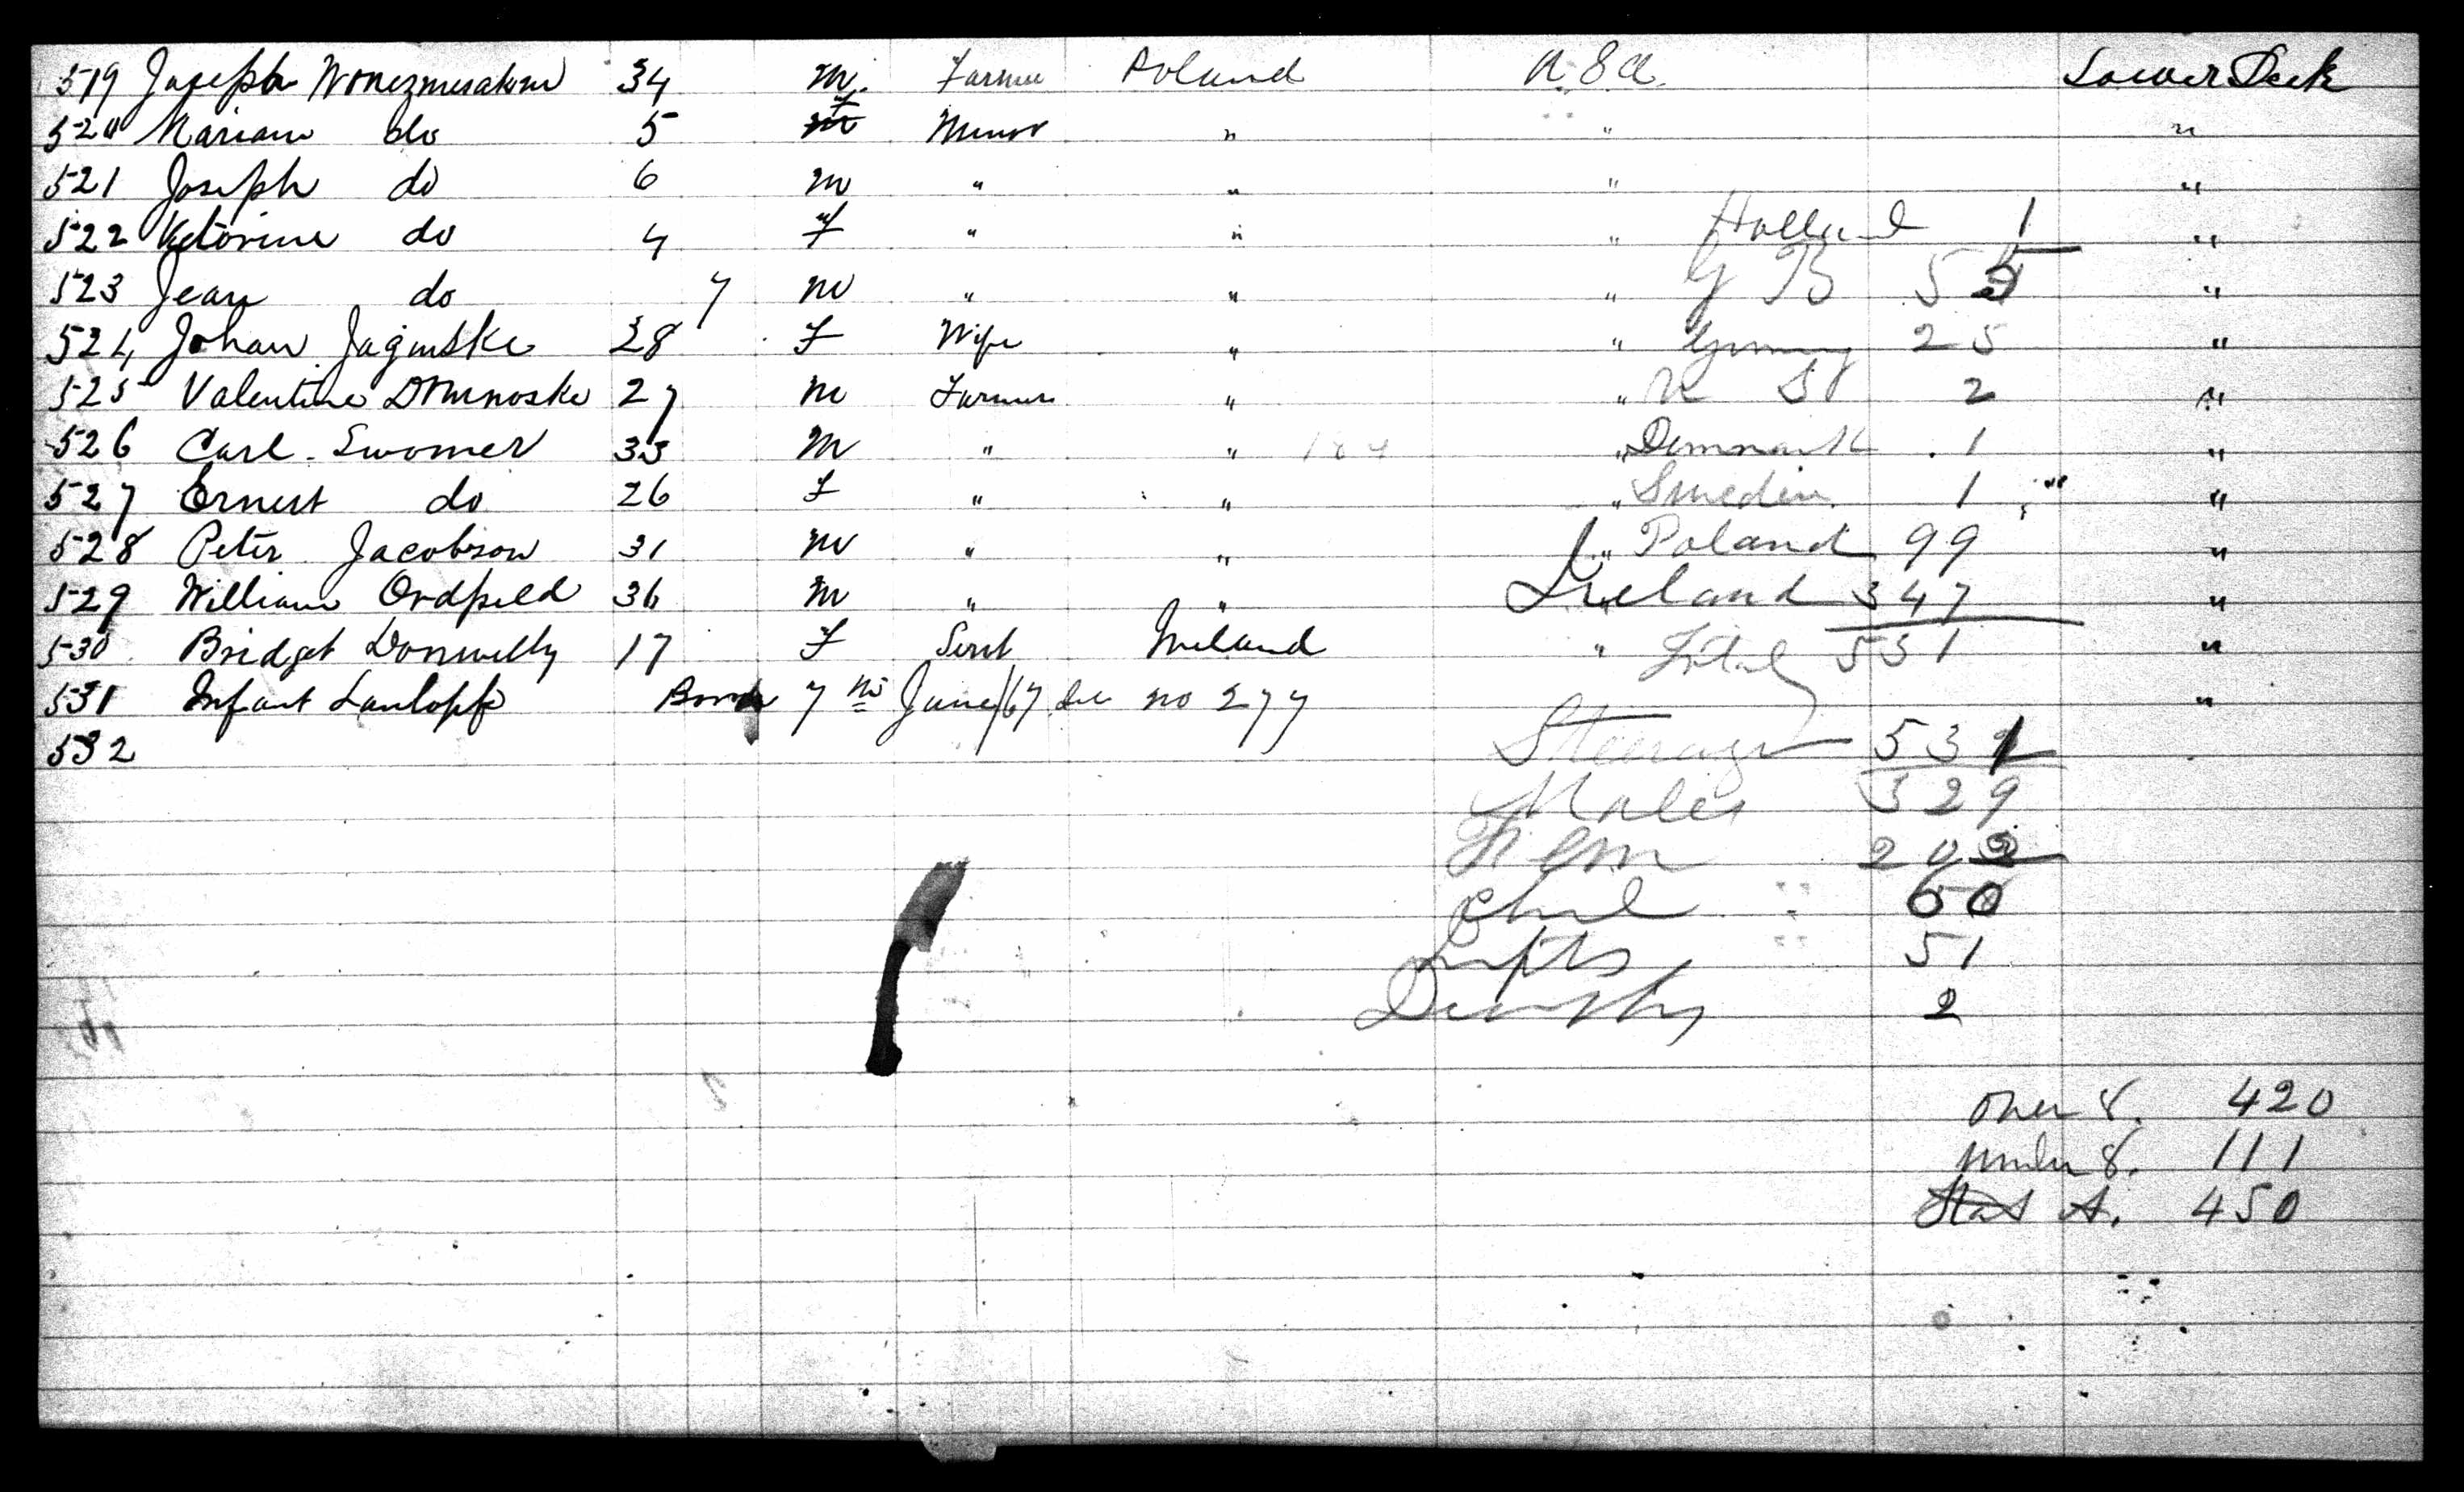 519 Joseph 34 m. Farmer Poland U.S.A. Lower Deck
520 Mariam do 5 f Minor " " "
521 Joseph do 6 m " " " "
522 do 4 f " " " "
Holland 1
523 Jean do 7 m " " " "
G B 55
524 Johan Jaginske 28 F Wife " " "
Germany 25
525 Valentine 27 m Farmer " " "
U S 2
526 Carl Swomer 33 m " " " "
Denmark 1
527 Ernest do 26 F " " " "
Sweden 1
528 Peter Jacobson 31 m " " " "
Poland 99
529 William 36 m " " "
Ireland 347
530 Bridget Donnelly 17 F Servt Ireland " "
Total 531
531 Infant Born 7th June/67 see no 277 "
532
Steerage 531
Males 329
Fem 202
Chil 60
Infts 51
Deaths 2
over 8. 420
under 8. 111
Stat A. 450